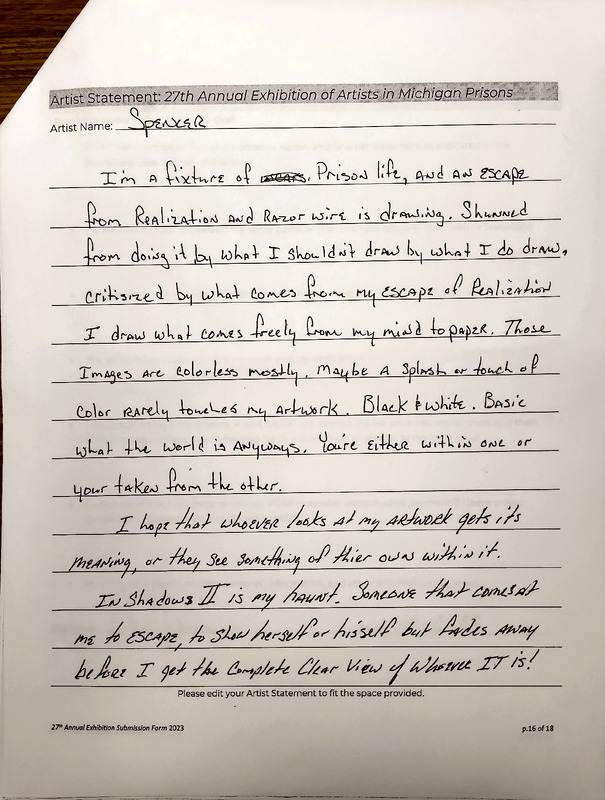 Artist Statement: 27th Annual Exhibition of Artists in Michigan Prisons
Artist Name: Spencer
I'm a fixture of Prison life, and an escape
from Realization and Razor wire is drawing. Shunned
from doing it by what I shouldn't draw by what I do draw,
critisized by what comes from my escape of Realization
I draw what comes freely from my mind to paper. Those
Images are colorless mostly. Maybe a splash or touch of
color rarely touches my artwork. Black & white. Basic
what the world is anyways. You're either within one or
your taken from the other.
I hope that whoever looks at my artwork gets its
meaning, or they see something of thier own within it.
In Shadows II is my haunt. Someone that comes at
me to escape, to show herself or hisself but fades away
before I get the Complete Clear View of Whoever IT is!
Please edit your Artist Statement to fit the space provided.
27th Annual Exhibition Submission Form 2023
p.16 of 18